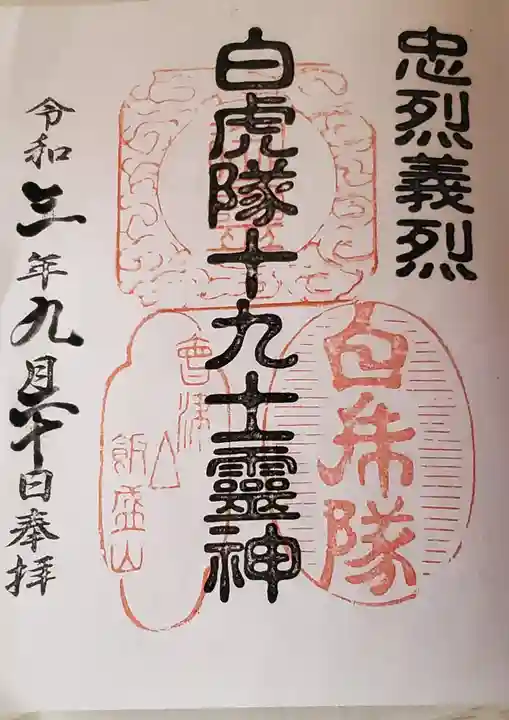 忠烈義烈
白虎隊十九士靈神
白虎隊
會津
飯盛山
令和三年九月十日奉拝